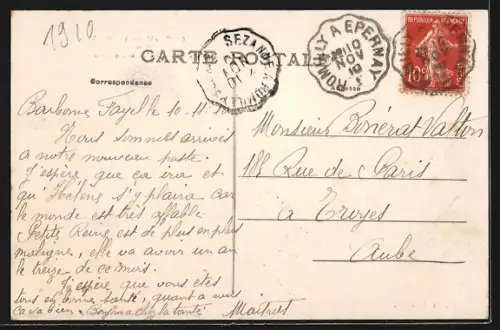 1910
CARTE POSTALE
Correspondance
SEZANNE
ROMILLY A EPERNAY
10
NOV
10
REPUBLIQUE FRANÇAISE
10c
Barbonne Fayelle 10-11
Nous sommes arrivés
à notre nouveau poste.
J'espère que ça ira et
qu'Hélène s'y plaira car
le monde est très affable
Petite Reine est de plus en plus
maligne, elle va avoir un an
le treize de ce mois.
J'espère que vous êtes
tous en bonne santé, quant à nous
ça va bien. Bonjour chez la tante
Maitrot
Monsieur Bonérat-Valton
188 Rue de Paris
à Troyes
Aube